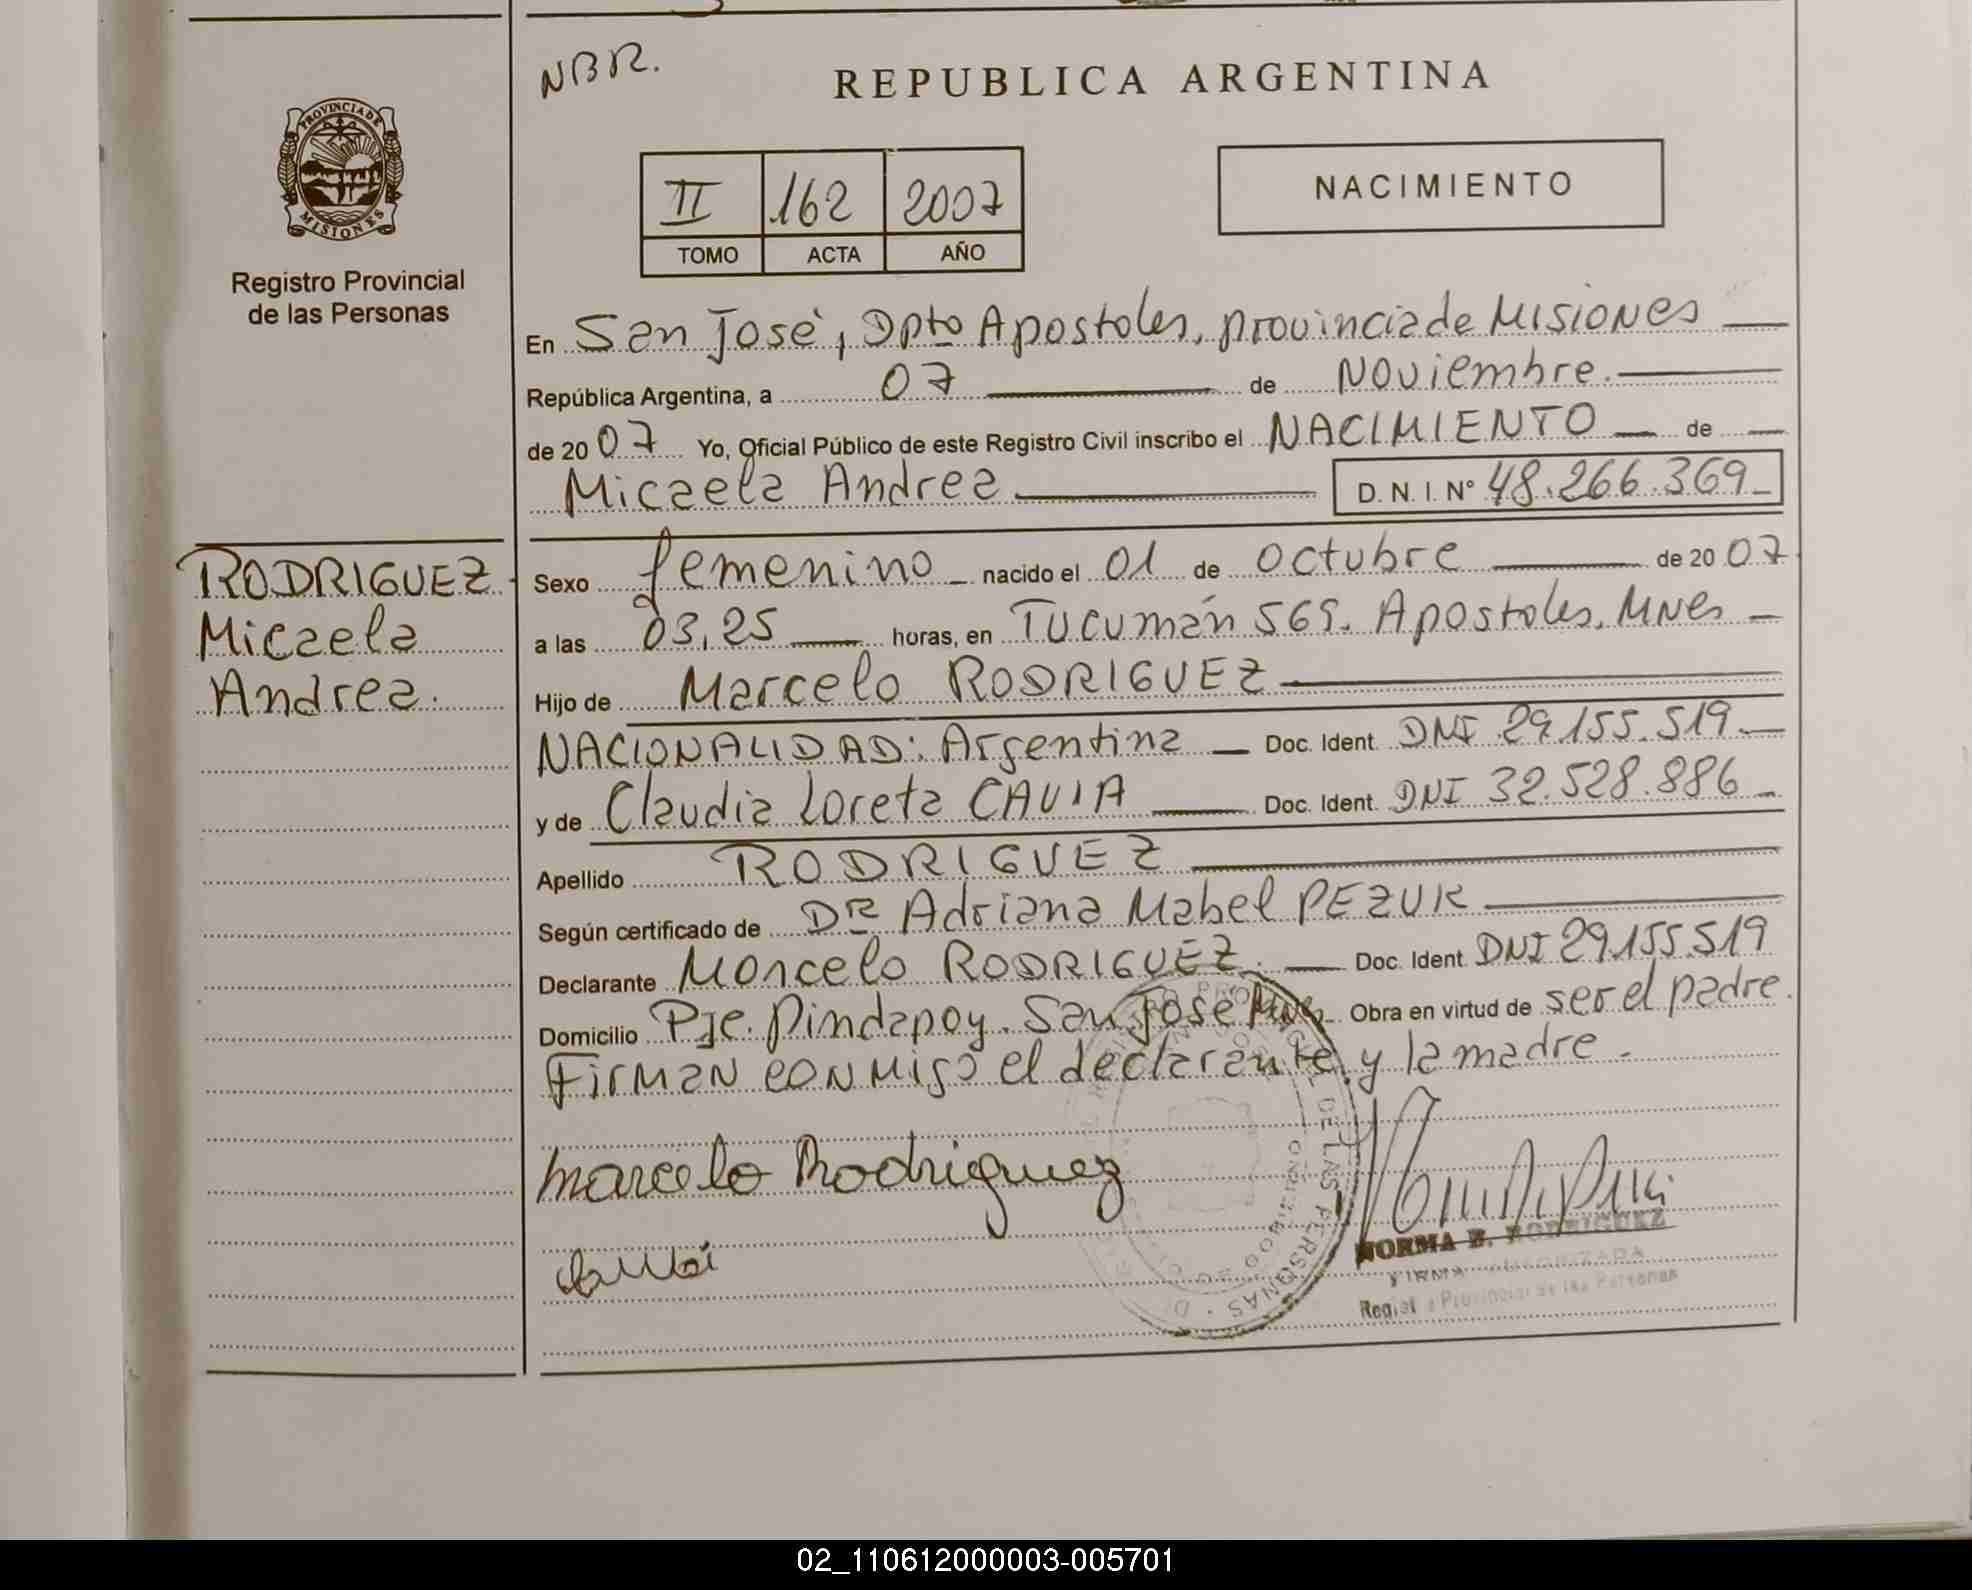 NBR.
REPUBLICA ARGENTINA
PROVINCIA DE
MISIONES
Registro Provincial
de las Personas
II 162 2007
TOMO ACTA AÑO
NACIMIENTO
En San José, Dpto Apostoles, provincia de Misiones
República Argentina, a 07 de Noviembre.
de 2007 Yo, Oficial Público de este Registro Civil inscribo el NACIMIENTO de
Micaela Andrea D. N. I. N° 48.266.369
RODRIGUEZ
Micaela
Andrea.
Sexo femenino nacido el 01 de octubre de 2007
a las 03,25 horas, en Tucumán 569. Apostoles. Mnes
Hijo de Marcelo RODRIGUEZ
NACIONALIDAD: Argentina Doc. Ident. DNI 29.155.519
y de Claudia Loreta CAVIA Doc. Ident. DNI 32.528.886
Apellido RODRIGUEZ
Según certificado de Dra Adriana Mabel PEZUK
Declarante Marcelo RODRIGUEZ. Doc. Ident. DNI 29.155.519
Domicilio Pje. Pindapoy. San José Mnes Obra en virtud de ser el padre.
Firman conmigo el declarante y la madre.
Marcelo Rodriguez
NORMA B. RODRIGUEZ
FIRMA AUTORIZADA
Registro Provincial de las Personas
02_110612000003-005701